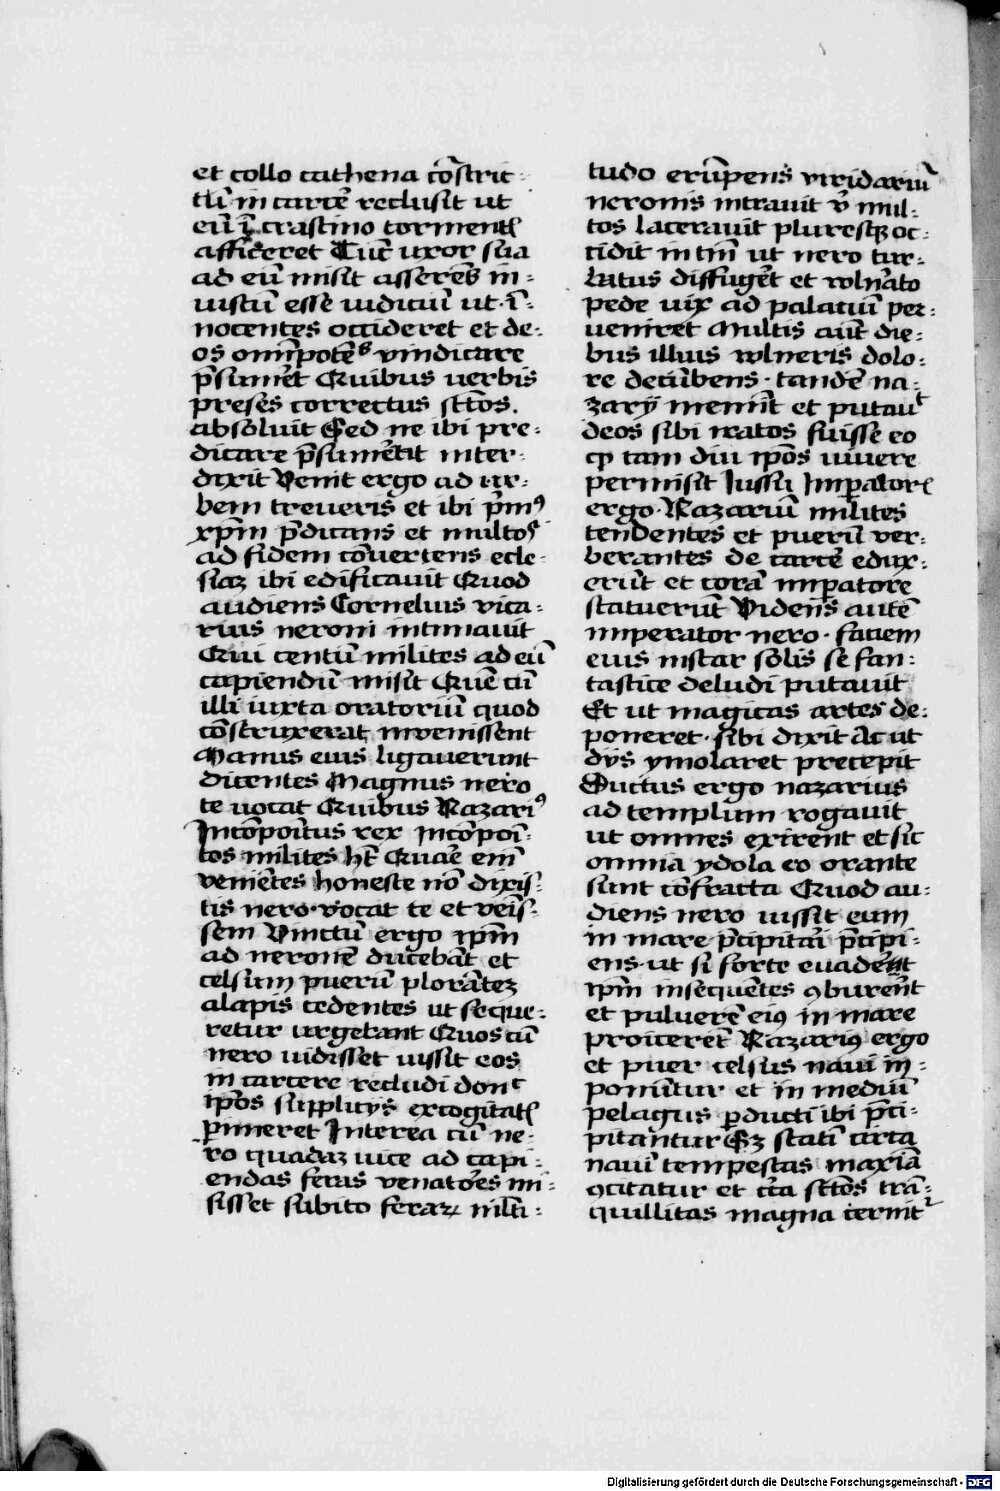 et collo cathena cōstric-
tū in carcē reclusit ut
eū ī crastino tormentꝭ
afficeret Tūc uxor sua
ad eū misit asserēs in-
iustū esse iudiciū ut ī-
nocentes occideret et de-
os omīpotēs vindicare
p̄sumēt Quibus uerbis
preses correctus sc̄tos.
absoluit Sed ne ibi pre-
dicare p̄sumēret inter-
dixit Venit ergo ad ur-
bem treueris et ibi p̄mꝰ
xp̄m p̄dicans et multos
ad fidem cōuertens ecle-
siaz ibi edificauit Quod
audiens Cornelius vica-
rius neroni intimauit
Qui centū milites ad eū
capiendū misit Quē cū
illi iuxta oratoriū quod
cōstruxerat inuenissent
Manus eius ligauerunt
dicentes Magnus nero
te uocat Quibus Nazariꝰ
Incōpoītus rex incōpoī-
tos milites hꝫ Quare em̄
veniētes honeste nō dixis-
tis nero vocat te et veīs-
sem Vinctū ergo ip̄m
ad neronē ducebāt et
celsum puerū plorātez
alapis cedentes ut seque-
retur urgebant Quos cū
nero uidisset iussit eos
in carcere recludi donͨ
ip̄os supplicijs excogitatꝭ
ꝑimeret Interea cū ne-
ro quadaz uice ad capi-
endas feras venatōes mi-
sisset subito feraꝝ m̄lti-
tudo erūpens viridariū
neronis intrauit ⁊ mul-
tos lacerauit pluresqꝫ oc-
cidit in tm̄ ut nero tur-
batus diffugēt et wlnāto
pede uix ad palatiū per-
ueniret Multis aūt die-
bus illius wlneris dolo-
re decūbens · tandē na-
zarij memīt et putauͭ
deos sibi iratos fuisse eo
ꝙ tam diu ip̄os uiuere
permisit Iussu Imꝑatorꝭ
ergo · Nazariū milites
tendentes et puerū ver-
berantes de carcē edux-
erūt et corā imꝑatore
statuerūt Videns autē
imperator nero · faciem
eius instar solis se fan-
tastice deludi putauit
Et ut magicas artes de-
poneret · sibi dixit Ac ut
dijs ymolaret precepit
Ductus ergo nazarius
ad templum rogauit
ut omnes exirent et sic
omnia ydola eo orante
sunt cōfracta Quod au-
diens nero iussit eum
in mare p̄cipitari p̄cipi-
ens · ut si forte euadēt
ip̄m insequētes ꝯburēnt
et puluerē eiꝰ in mare
proicerēt Nazariꝰ ergo
et puer celsus naui im-
ponūtur et in mediū
pelagus ꝑducti ibi p̄ci-
pitantur Sꝫ statī circa
nauī tempestas maxīa
ꝯcitatur et c̄ca sc̄tos trā-
quillitas magna cernitᷣ
Digitalisierung gefördert durch die Deutsche Forschungsgemeinschaft - DFG